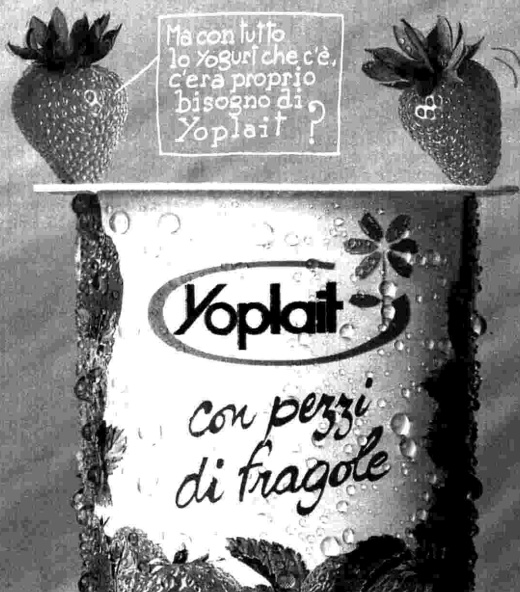 Ma con tutto
lo yogurt che c'è,
c'era proprio
bisogno di
Yoplait ?
Yoplait
con pezzi
di fragole